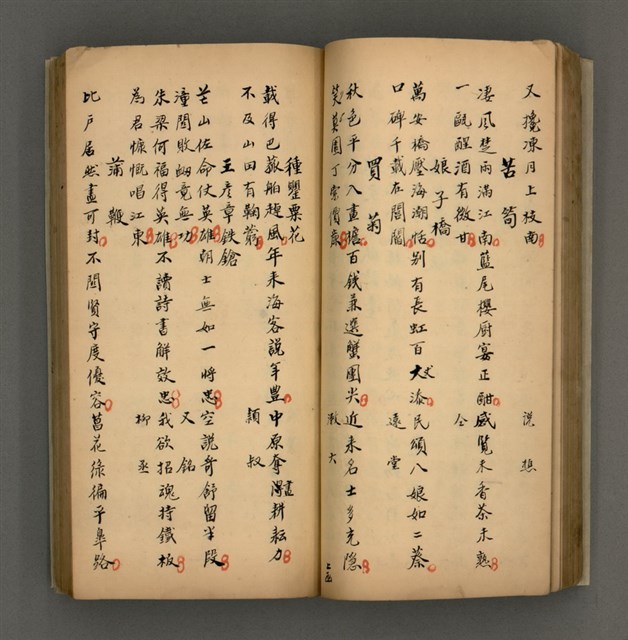 又攙凍月上枝南
說想
苦筍
淒風楚雨滿江南藍尾櫻厨宴正酣盛覽木香茶未熟
一甌醒酒有微甘
仝
娘子橋
萬安橋壓海潮恬別有長虹百丈添民頌八娘如二蔡
口碑千載在閭閻
遠堂
買菊
秋色平分入畫擔百錢兼選蟹團尖近來名士多充隱
莫園丁索價廉
瀫大
種罌粟花
載得巴菰舶趠風年來海客說年豐中原奪盡耕耘力
不及山田有鞠藭
穎叔
王彥章鉄鎗
芒山佐命仗英雄朝士無如一將忠空說奇舒留半段
潼関敗衂竟無功
又銘
朱梁何福得英雄不讀詩書解效忠我欲招魂持鐵板
為君慷慨唱江東
柳丞
蒲鞭
比戶居然盡可封不関賢守度優容菖花綠徧平臯路